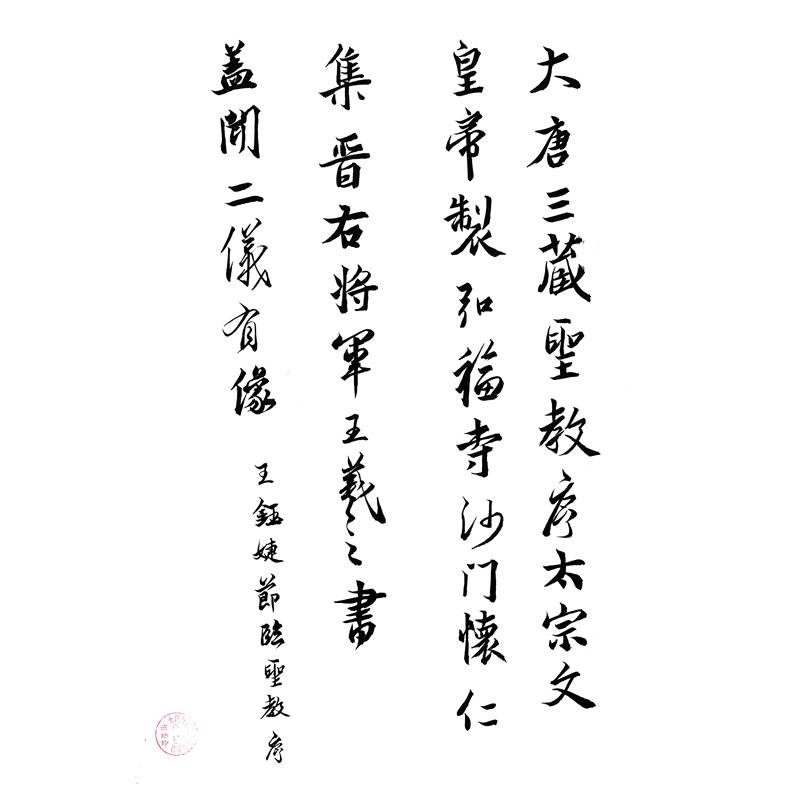 大唐三藏聖教序太宗文
皇帝製弘福寺沙門懷仁
集晋右將軍王羲之書
盖聞二儀有像
王鈺婕節臨聖教序